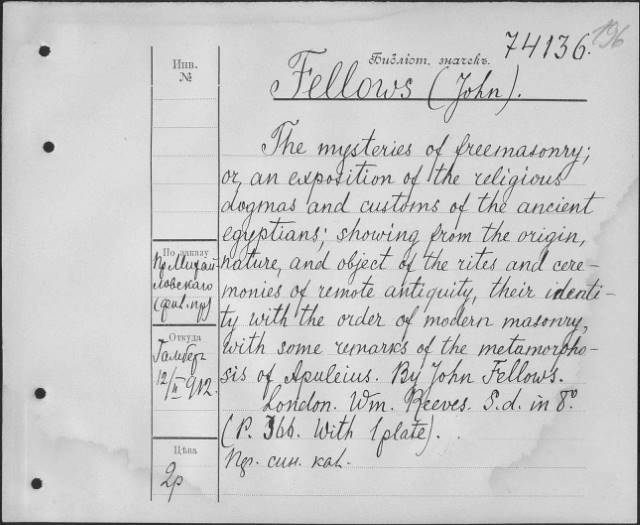 74136.
196
Библіот. значекъ.
Инв.
№
Fellows (John).
The mysteries of freemasonry;
or, an exposition of the religious
dogmas and customs of the ancient
egyptians; showing from the origin,
nature, and object of the rites and cere-
monies of remote antiquity, their identi-
ty with the order of modern masonry,
with some remarks of the metamorpho-
sis of Apuleius. By John Fellows.
London. Wm. Reeves. S.d. in 8°.
(P. 366. With 1 plate).
син. кал.
По заказу
Пр. Михай-
ловскаго
Откуда
12/II 912.
Цѣна
2р